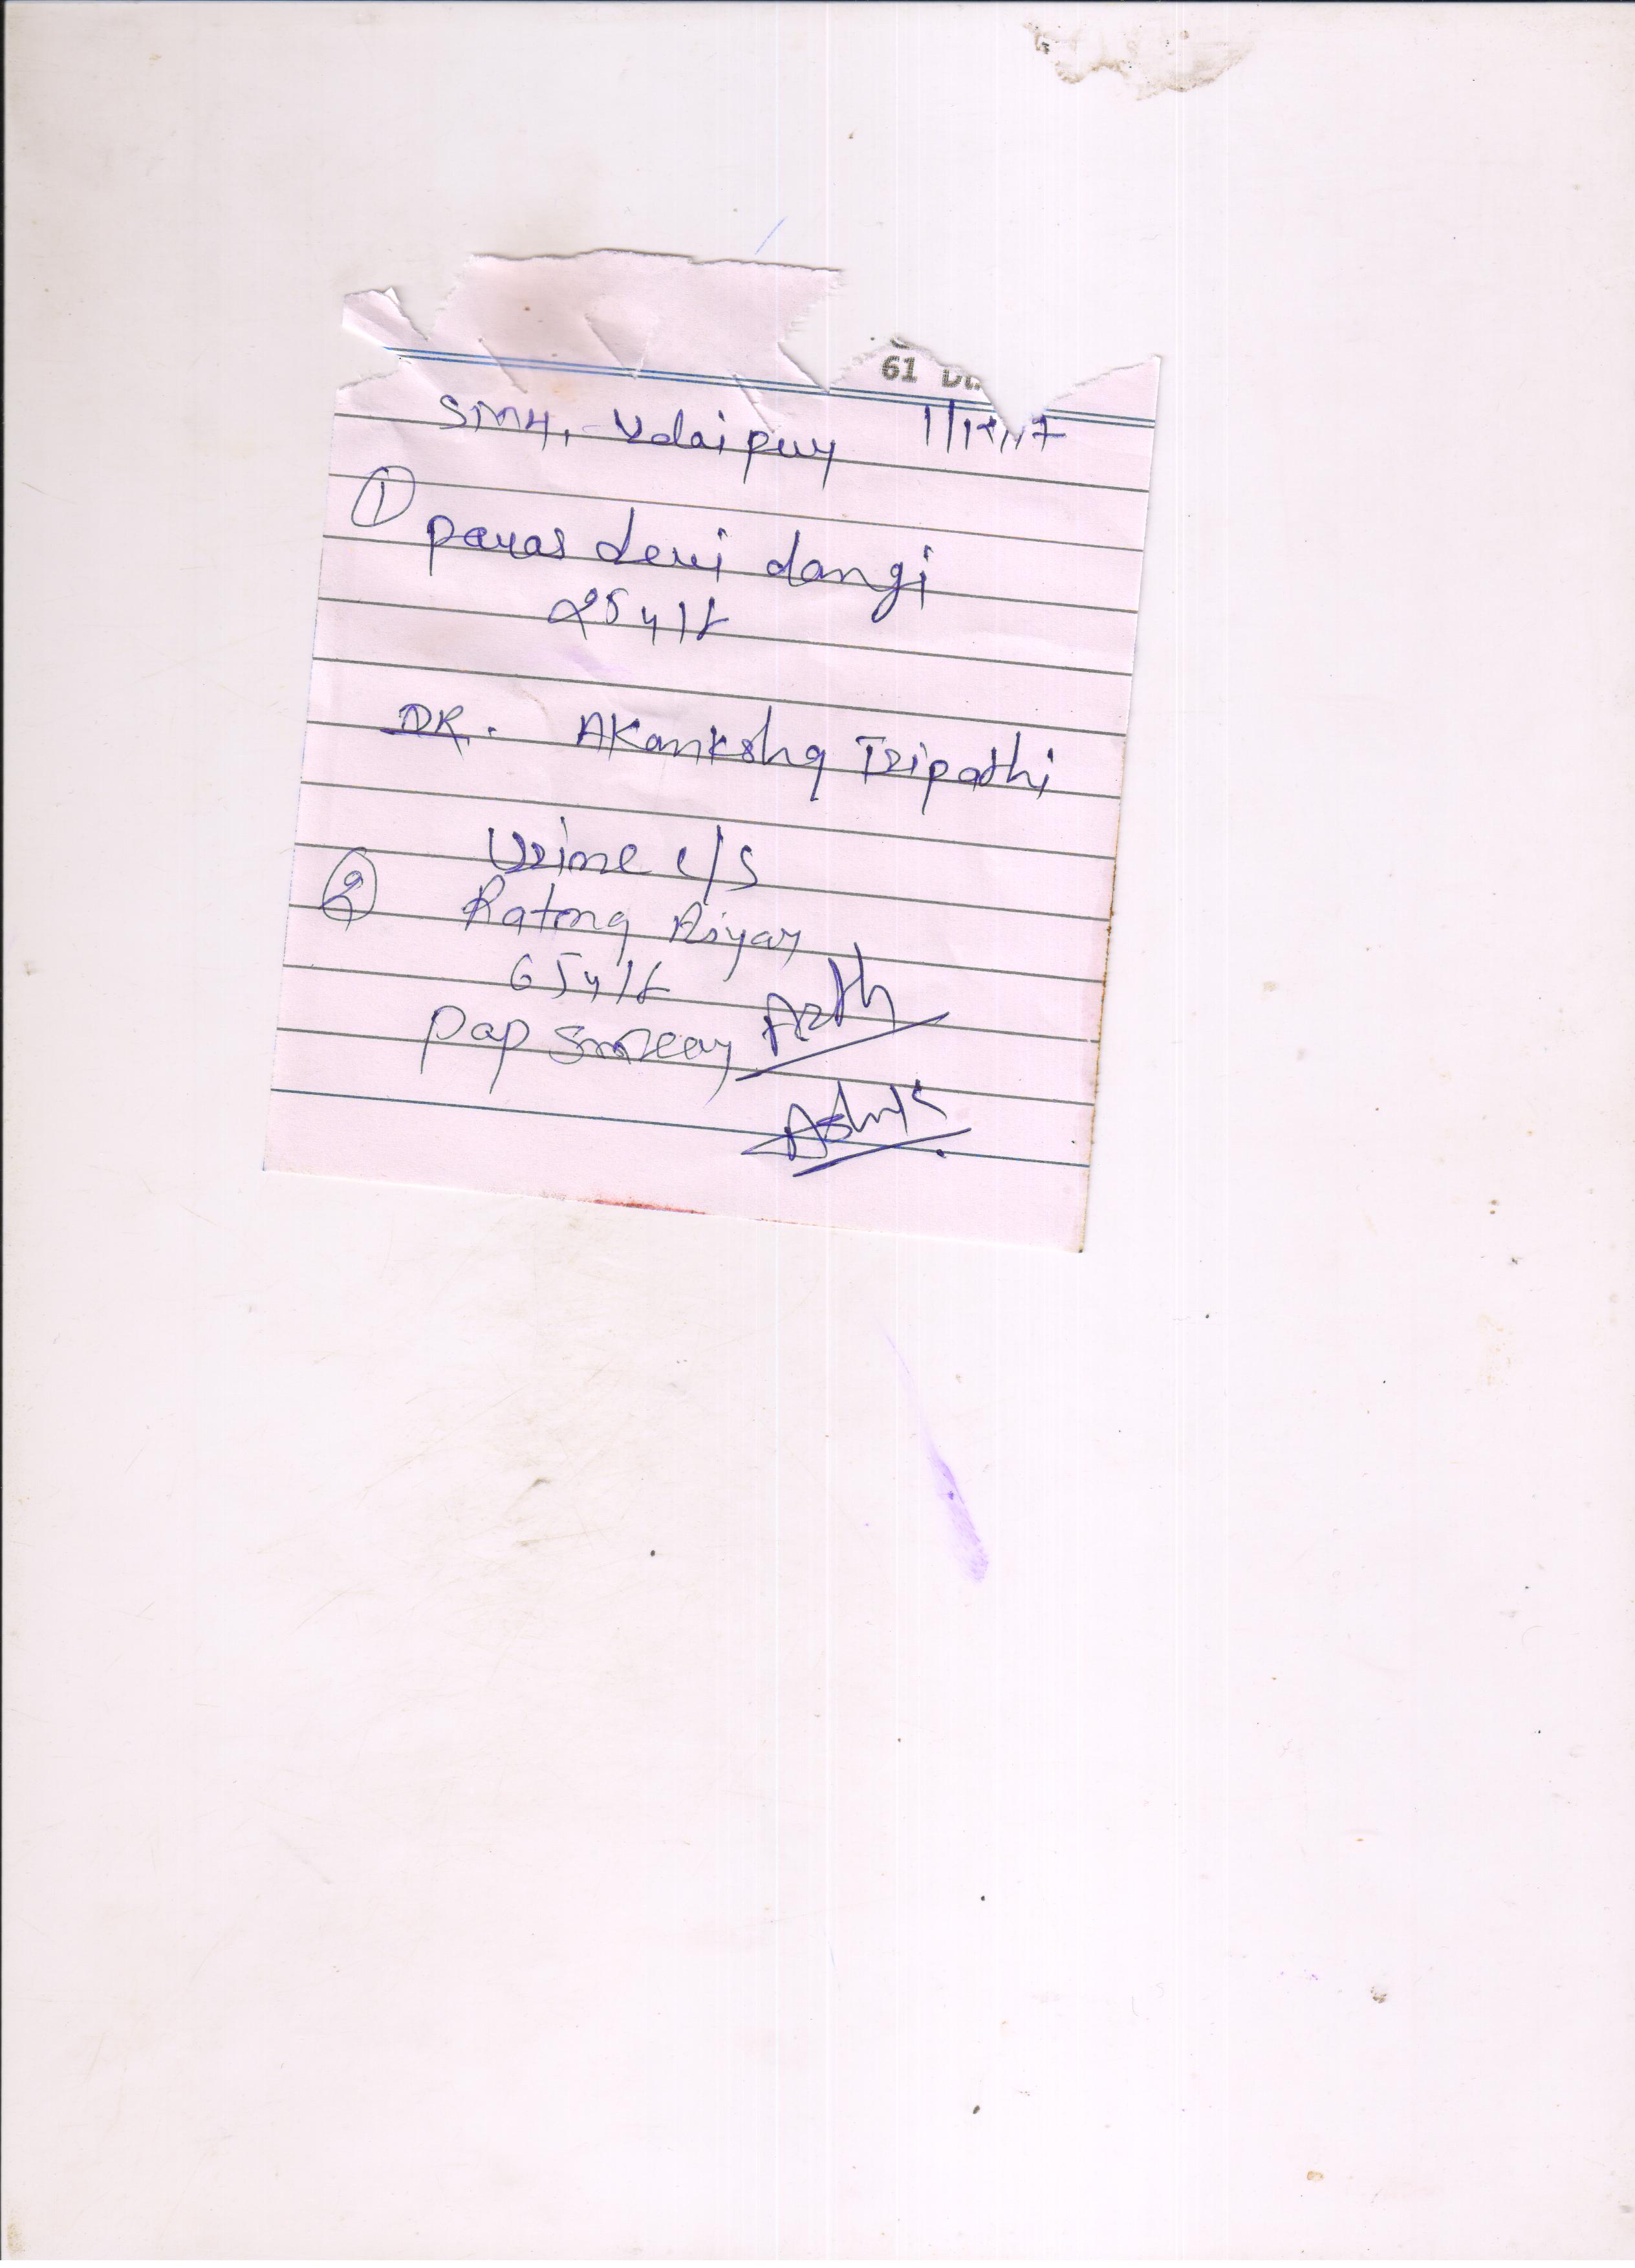 61
SMH, Udaipur 1/12/17
① paras devi dangi
25y/f
DR. AKanksha Tripathi
Urine c/s
② Ratna
65y/f
Pap Smear Arth
Ashwk